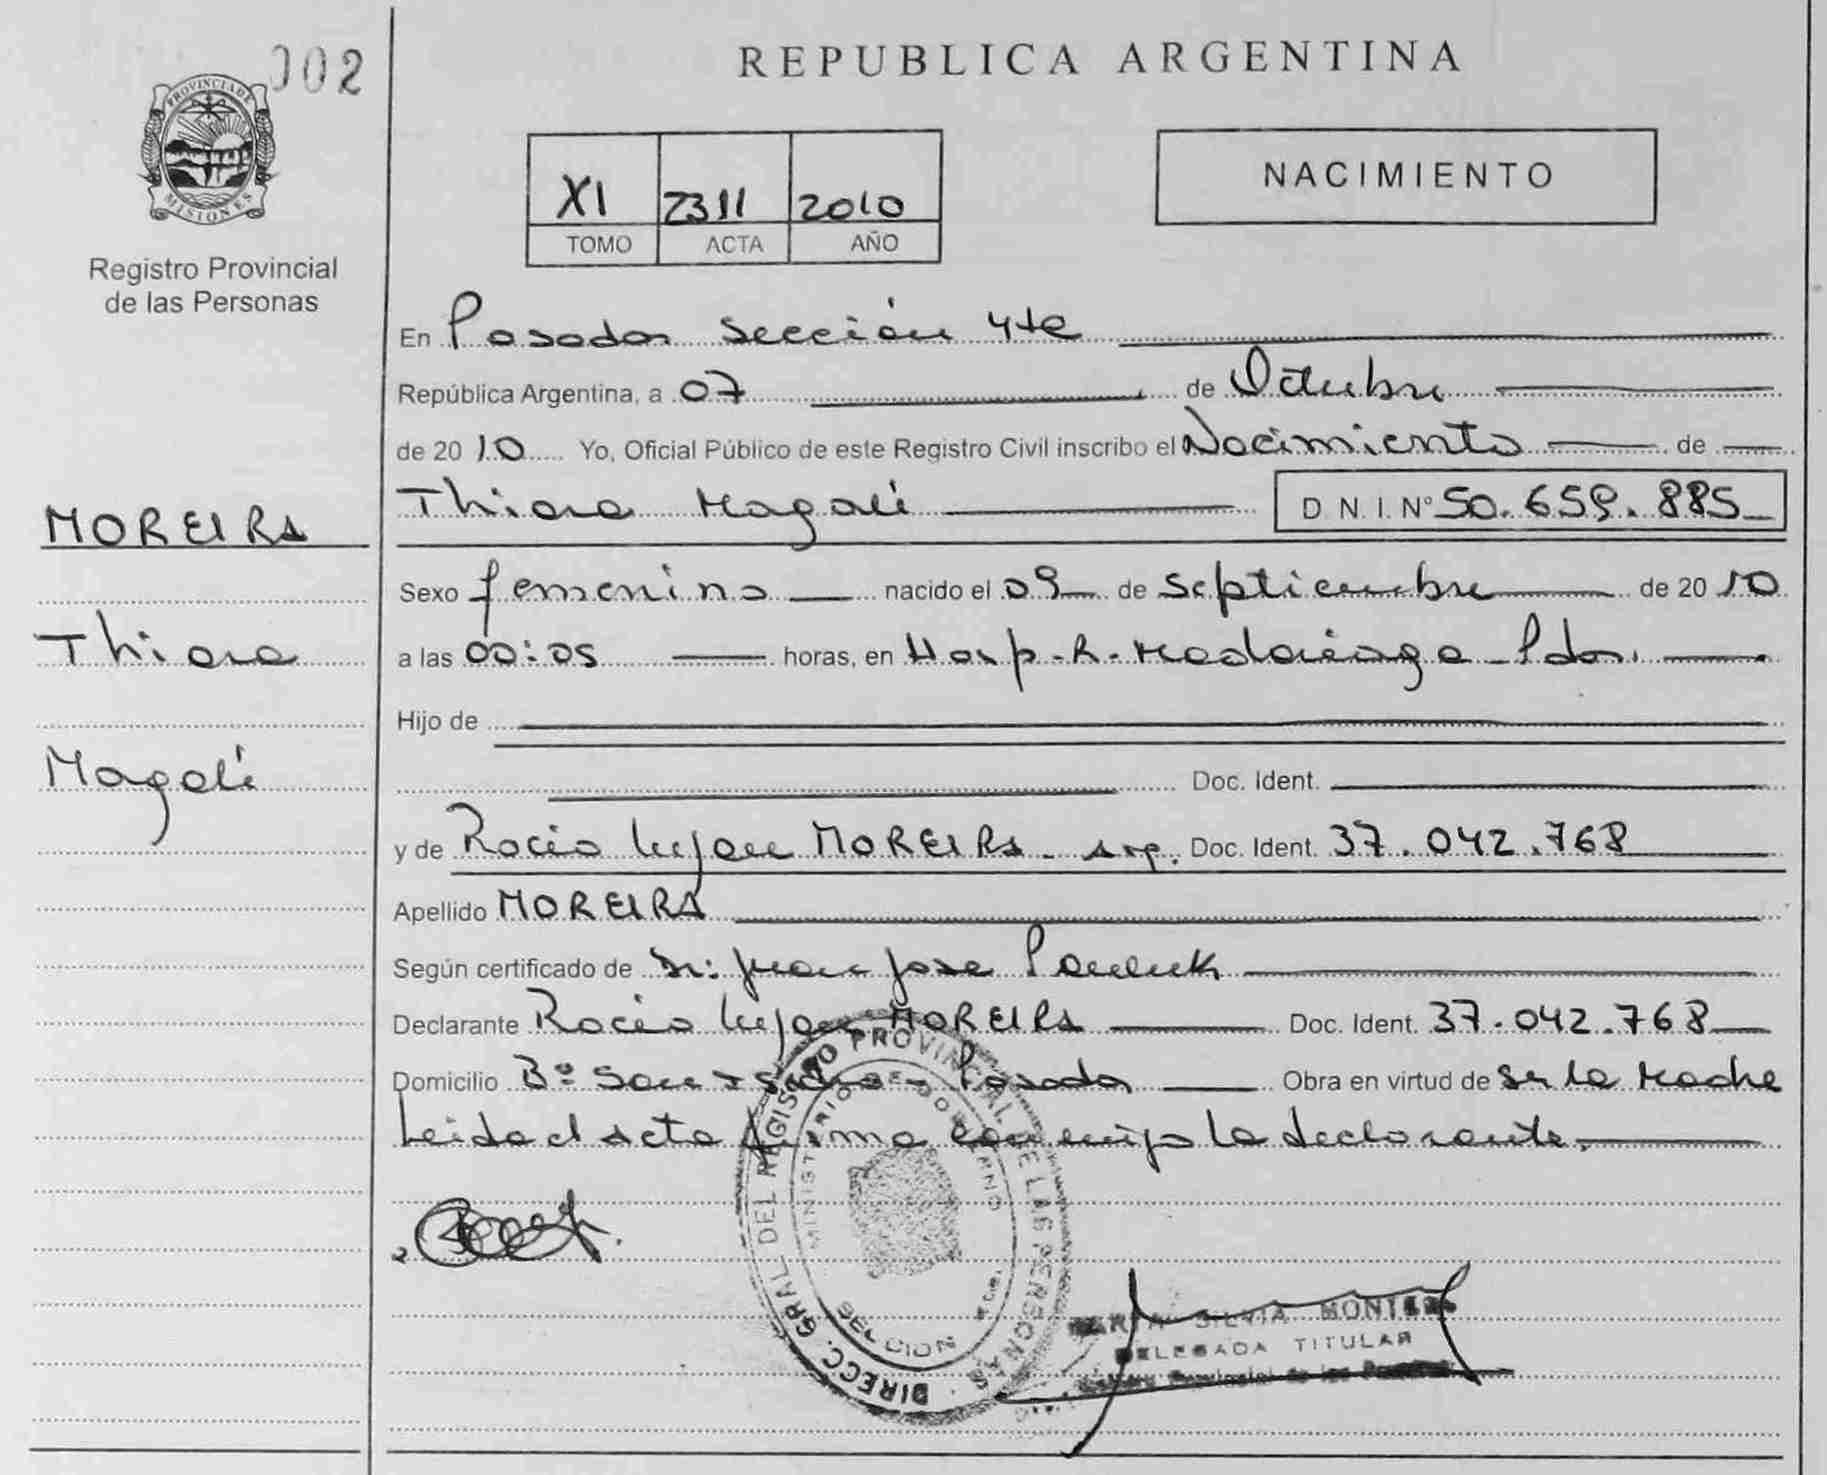 002
PROVINCIA DE
MISIONES
Registro Provincial
de las Personas
MOREIRA
Thiara
Magalí
REPUBLICA ARGENTINA
XI 2311 2010
TOMO ACTA AÑO
NACIMIENTO
En Posadas Sección 4ta
República Argentina, a 07 de Octubre
de 2010 Yo, Oficial Público de este Registro Civil inscribo el Nacimiento de
Thiara Magalí D.N.I. Nº 50.659.885
Sexo femenino nacido el 09 de Septiembre de 2010
a las 00:05 horas, en Hosp. R. Madariaga - Pdas.
Hijo de
Doc. Ident.
y de Rocio Lujan MOREIRA - arg. Doc. Ident. 37.042.768
Apellido MOREIRA
Según certificado de Dr: Juan Jose
Declarante Rocio Lujan MOREIRA Doc. Ident. 37.042.768
Domicilio Bº San Isidro - Posadas Obra en virtud de Ser la Madre
Leida el acta firma conmigo la declarante.
DIRECC. GRAL. DEL REGISTRO PROVINCIAL DE LAS PERSONAS
MINISTERIO DE GOBIERNO
SECCION
SILVIA
DELEGADA TITULAR
Provincial de las